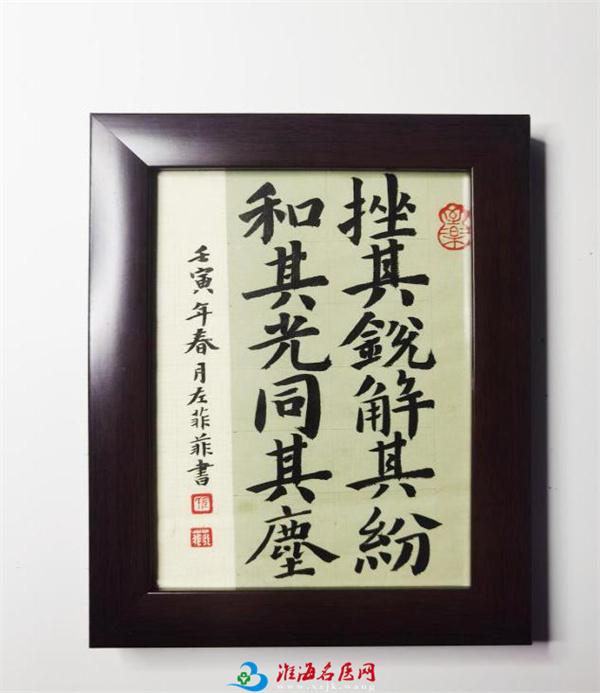 挫其銳解其紛
和其光同其塵
壬寅年春月左菲菲書
淮海名医网
www.xzjk.wang